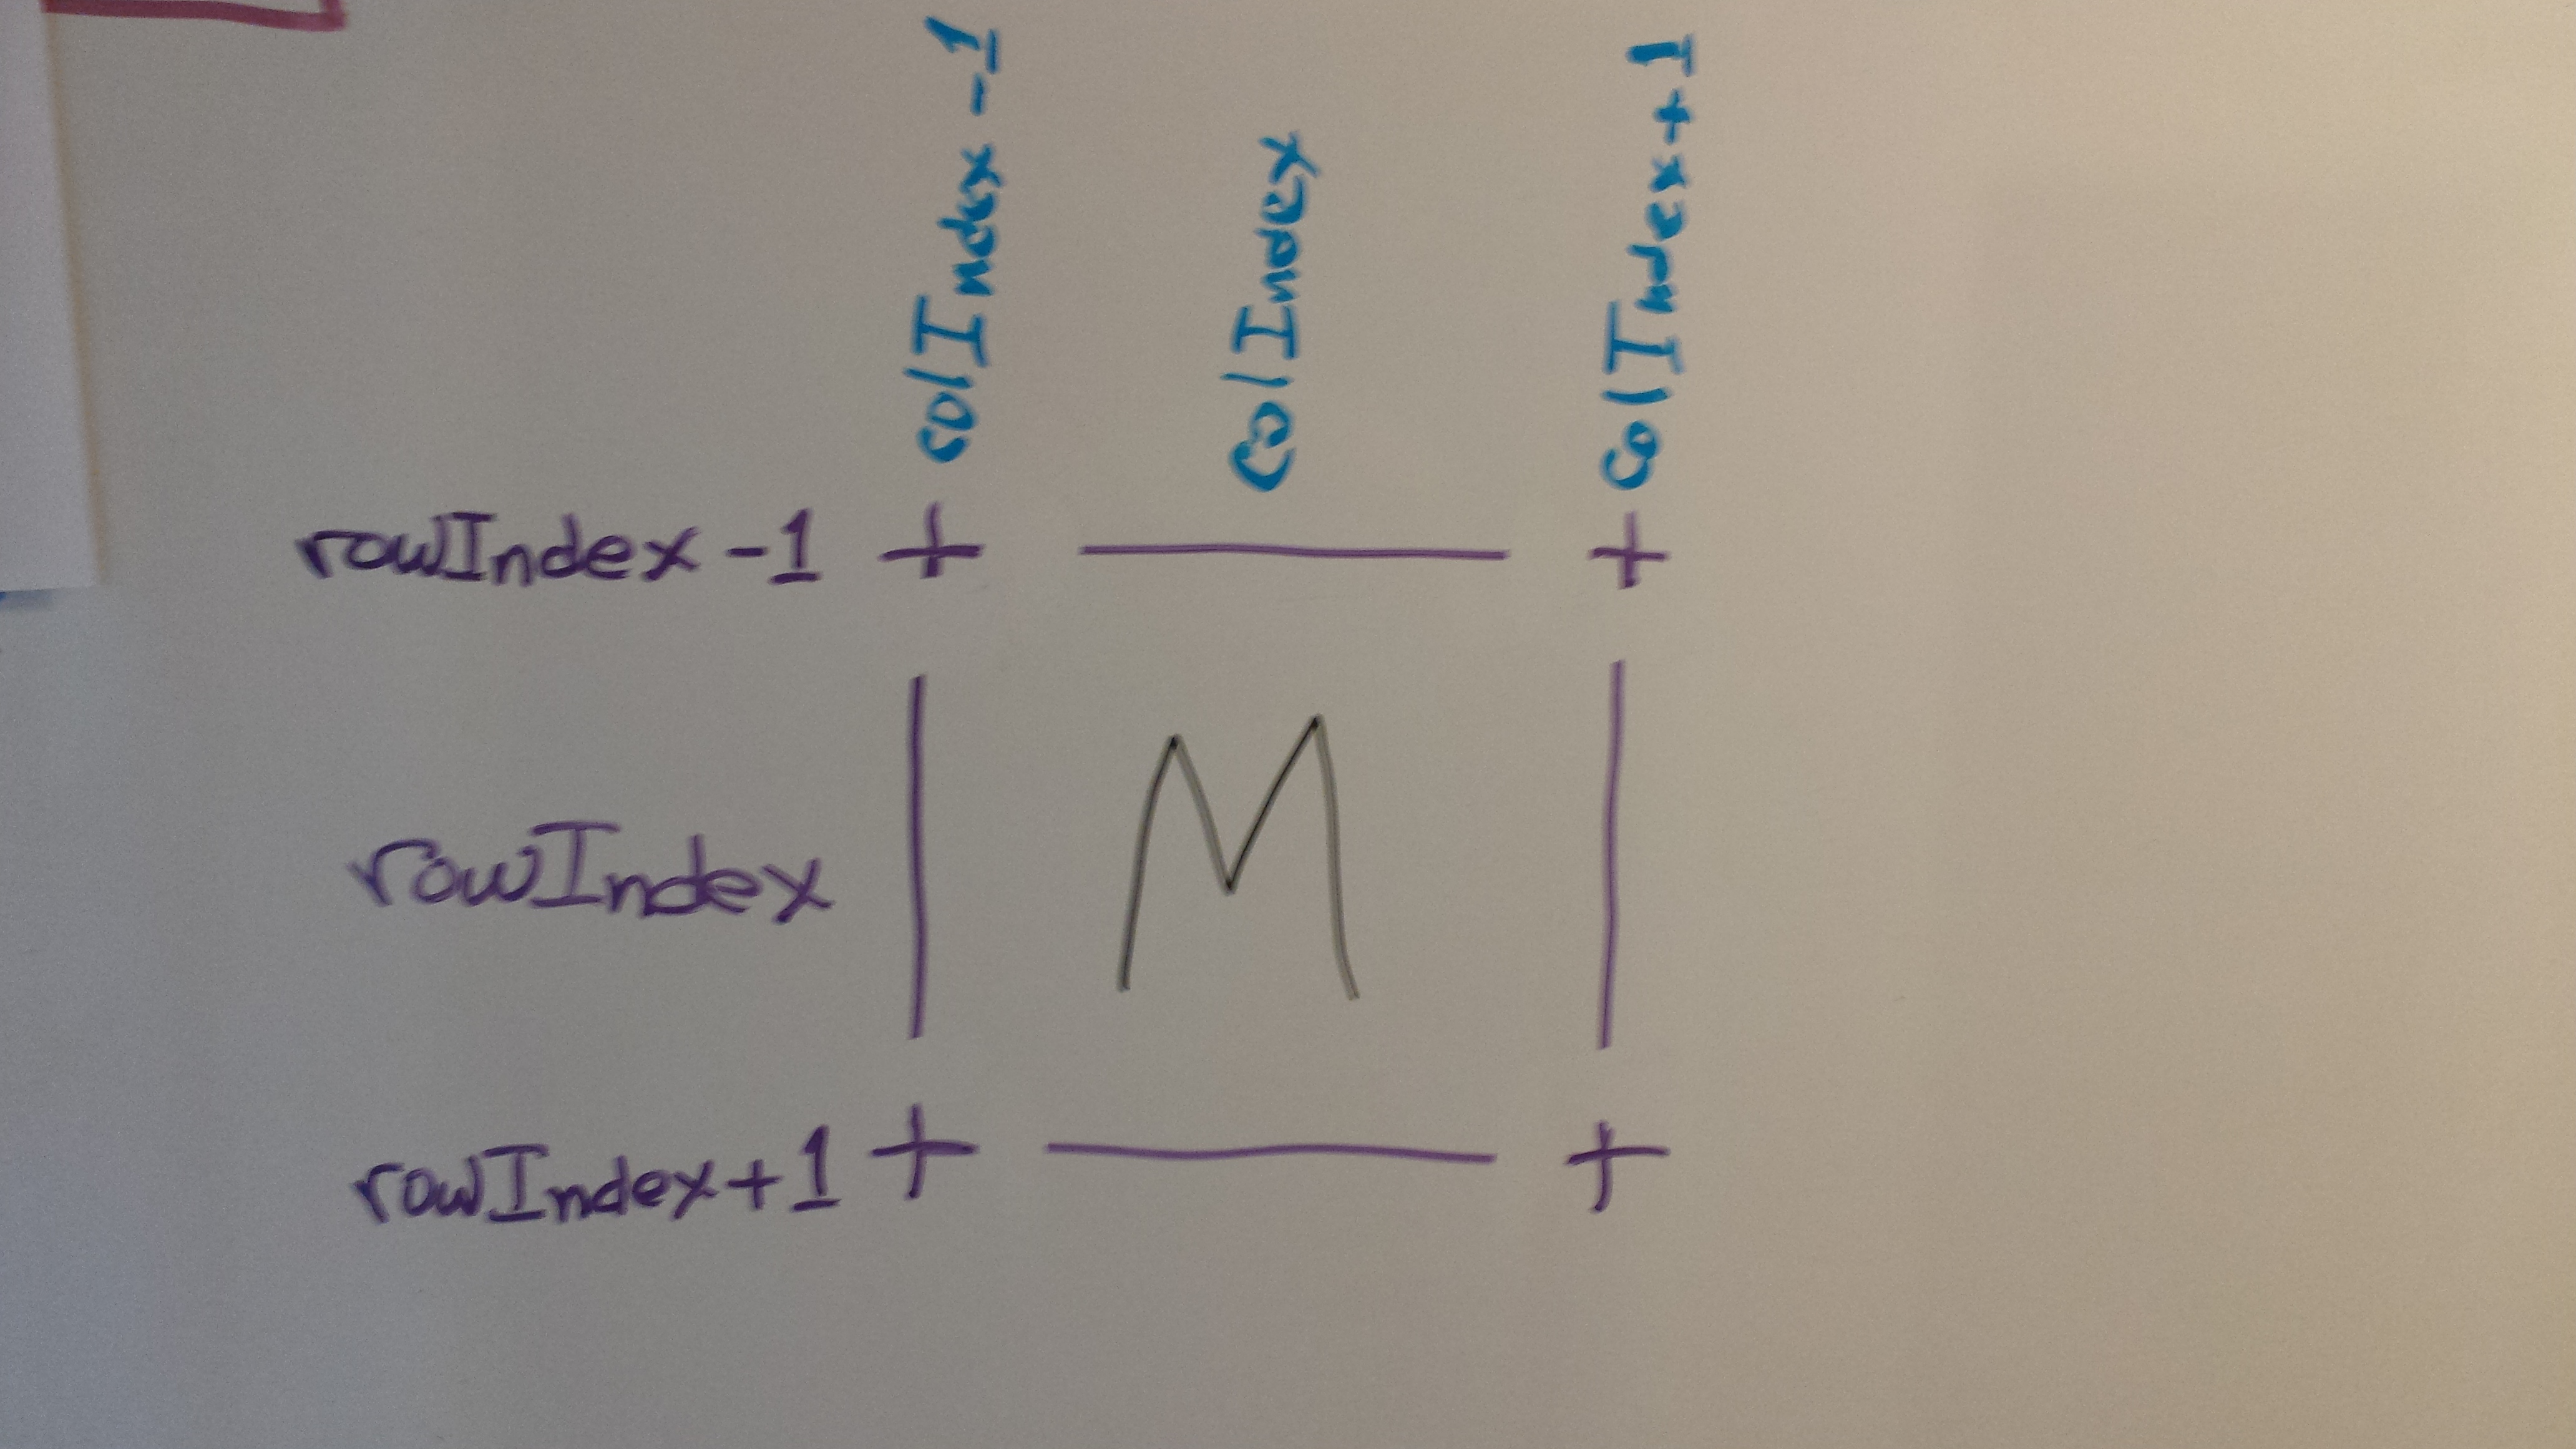 colIndex-1
colIndex
colIndex+1
rowIndex-1 + — +
rowIndex | M |
rowIndex+1 + — +